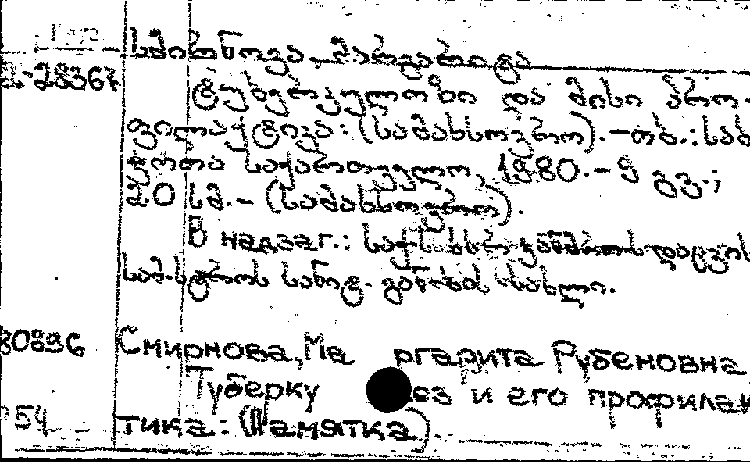 სმირნოვა, მარგარიტა
ტუბერკულოზი და მისი პრო-
ფილაქტიკა: (სამახსოვრო). – თბ.: საბ
ჭოთა საქართველო, 1980. – 9 გვ.;
20 სმ. – (სამახსოვრო).
В надзаг.: საქ. სსრ ჯანმრთ. დაცვის
სამ-სტროს სანიტ. განათ. სახლი.
80896 Смирнова, Маргарита Рубеновна
Туберкулез и его профилак
254 тика: (Памятка).